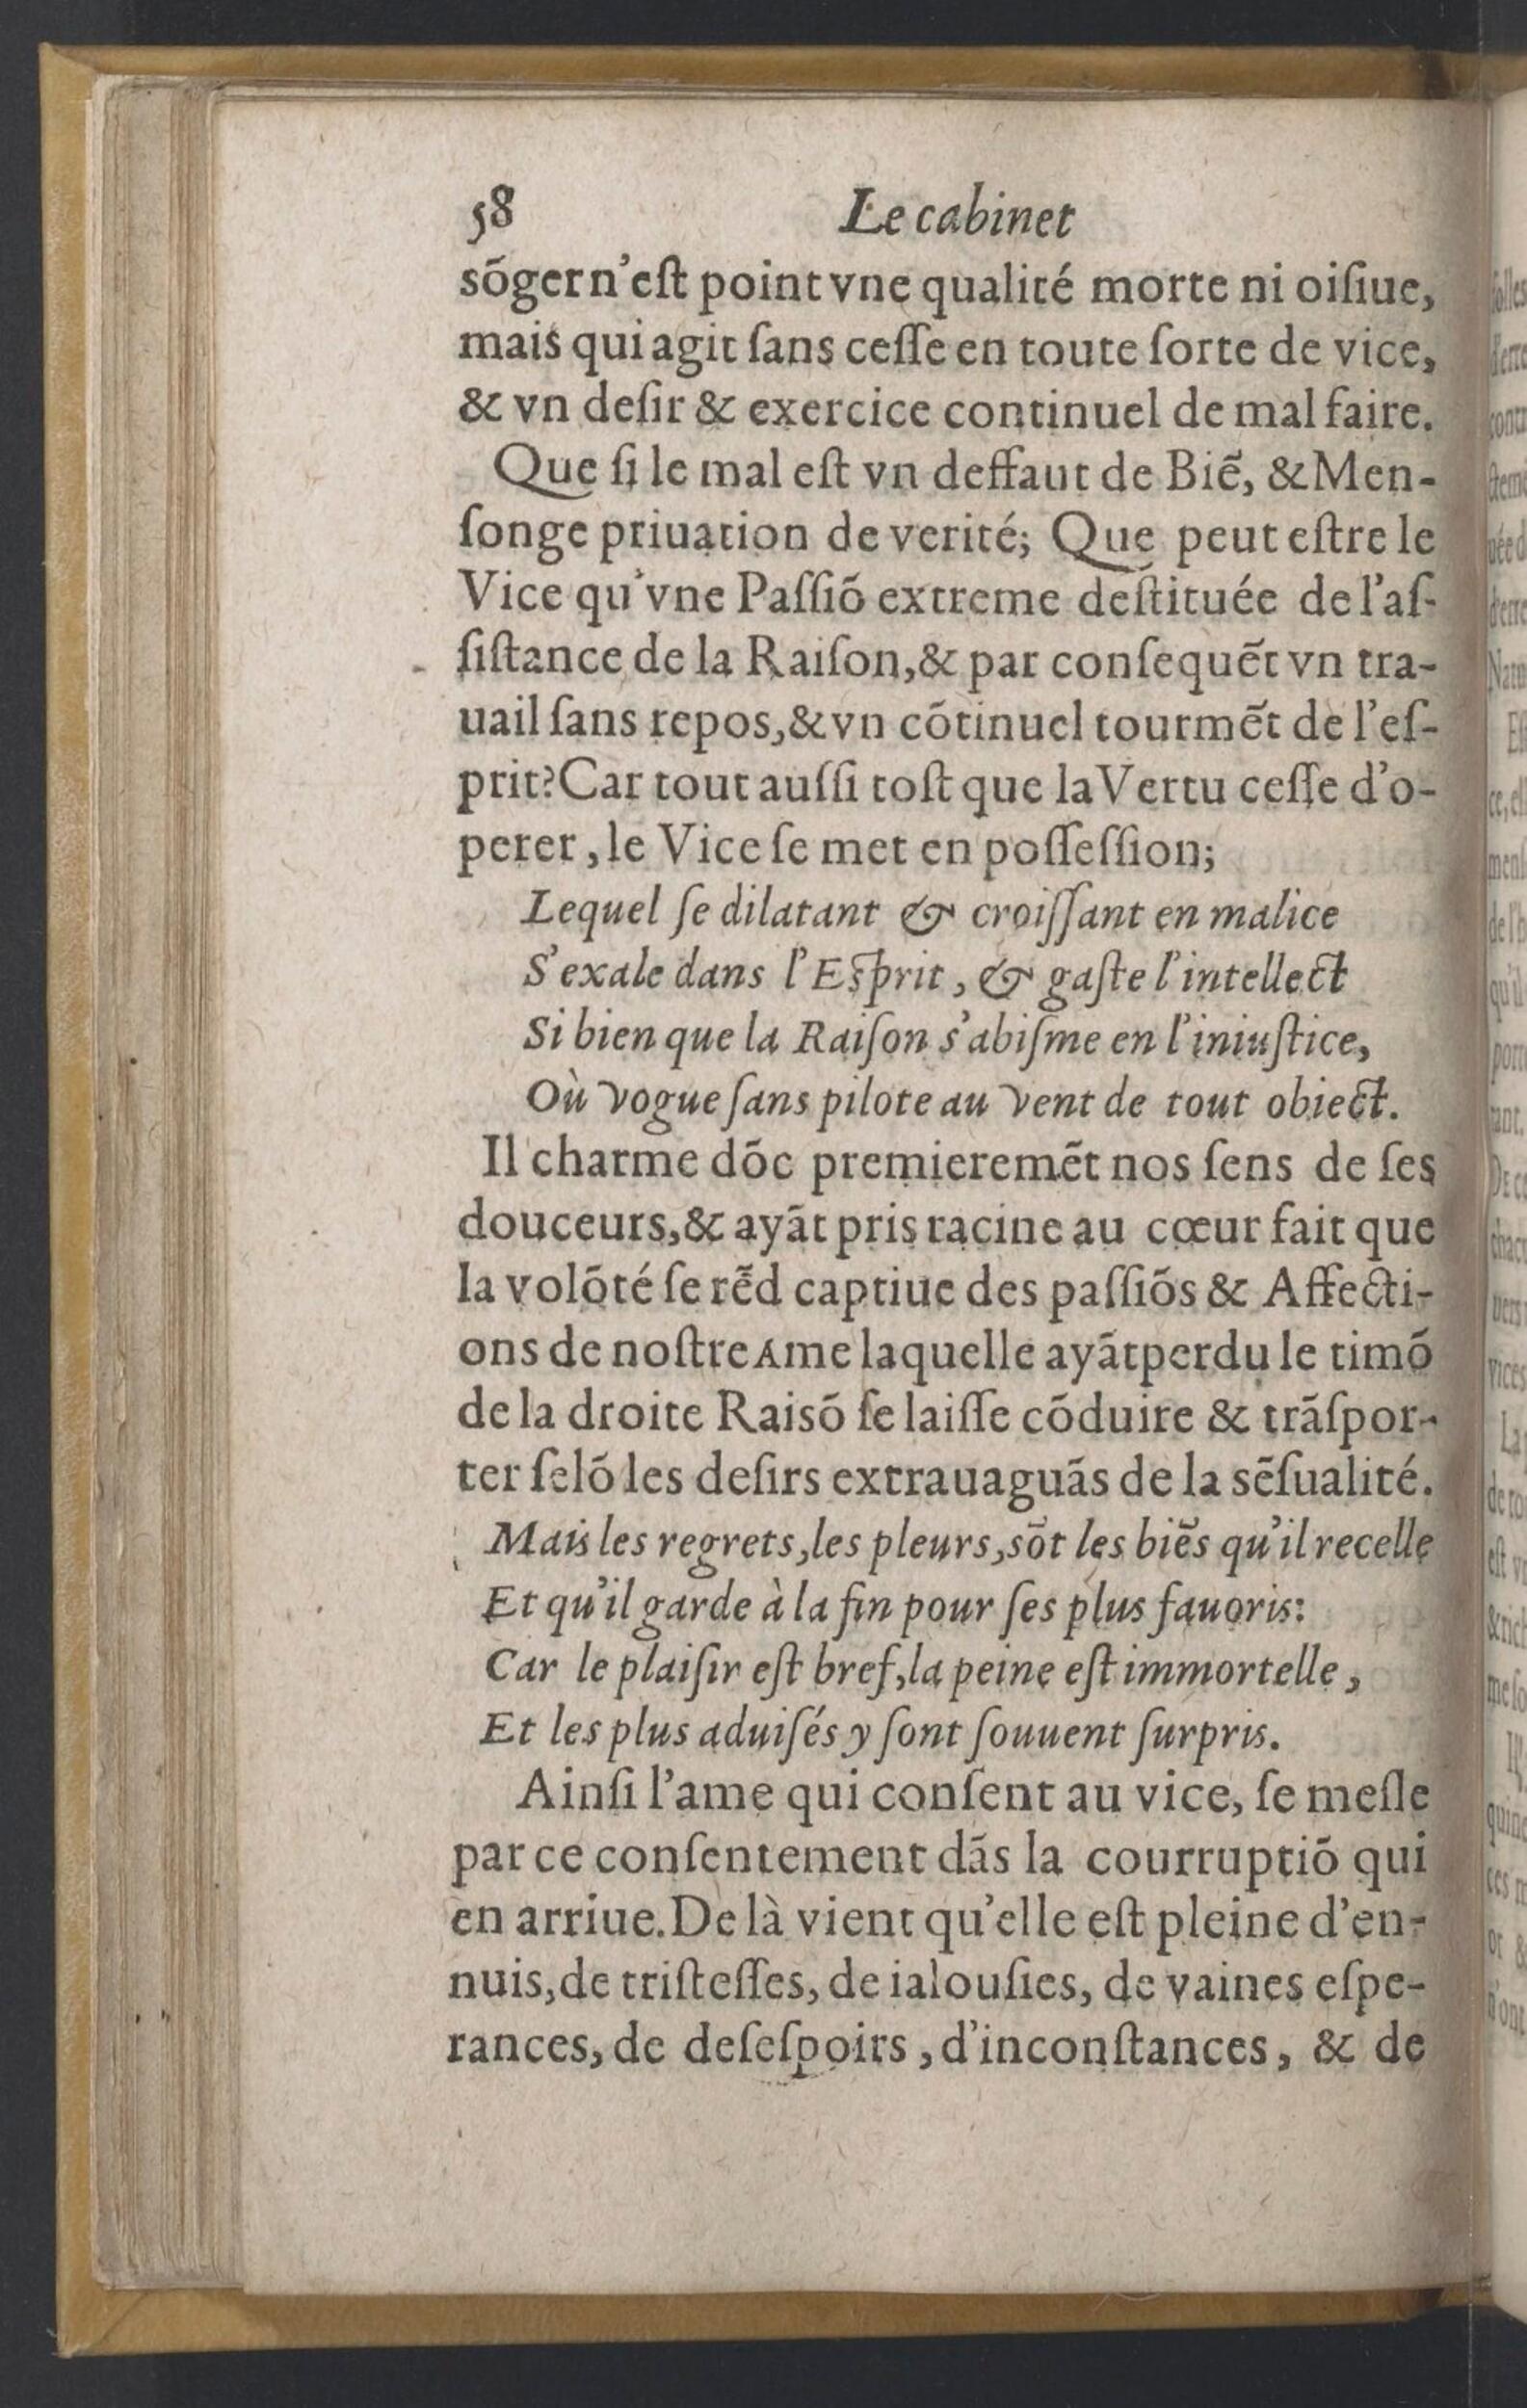 58 Le cabinet
sõger n'eſt point vne qualité morte ni oiſiue,
mais qui agit ſans ceſſe en toute ſorte de vice,
& vn deſir & exercice continuel de mal faire.
Que ſi le mal eſt vn deffaut de Biẽ, & Men-
ſonge priuation de verité; Que peut eſtre le
Vice qu'vne Paſſiõ extreme deſtituée de l'aſ-
ſiſtance de la Raiſon, & par conſequẽt vn tra-
uail ſans repos, & vn cõtinuel tourmẽt de l'eſ-
prit? Car tout auſſi toſt que la Vertu ceſſe d'o-
perer, le Vice ſe met en poſſeſſion;
Lequel ſe dilatant & croiſſant en malice
S'exale dans l'Eſprit, & gaſte l'intellect
Si bien que la Raiſon s'abiſme en l'iniuſtice,
Où vogue ſans pilote au vent de tout obiect.
Il charme dõc premieremẽt nos ſens de ſes
douceurs, & ayãt pris racine au cœur fait que
la volõté ſe rẽd captiue des paſſiõs & Affecti-
ons de noſtre Ame laquelle ayãt perdu le timõ
de la droite Raisõ ſe laiſſe cõduire & trãſpor-
ter ſelõ les deſirs extrauaguãs de la sẽſualité.
Mais les regrets, les pleurs, sõt les biẽs qu'il recelle
Et qu'il garde à la fin pour ſes plus fauoris:
Car le plaiſir eſt bref, la peine eſt immortelle,
Et les plus aduiſés y ſont ſouuent ſurpris.
Ainſi l'ame qui conſent au vice, ſe meſle
par ce conſentement dãs la courruptiõ qui
en arriue. De là vient qu'elle eſt pleine d'en-
nuis, de triſteſſes, de ialouſies, de vaines eſpe-
rances, de deſeſpoirs, d'inconſtances, & de